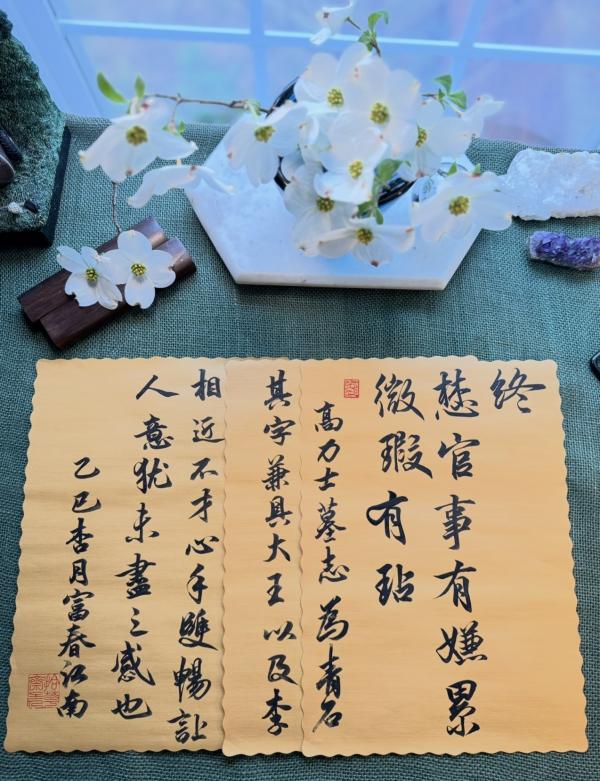 终
官事有嫌累
微瑕有玷
高力士墓志為青石
其字兼具大王以及李
相近不才心手雙暢让
人意犹未盡之感也
乙巳杏月富春江南